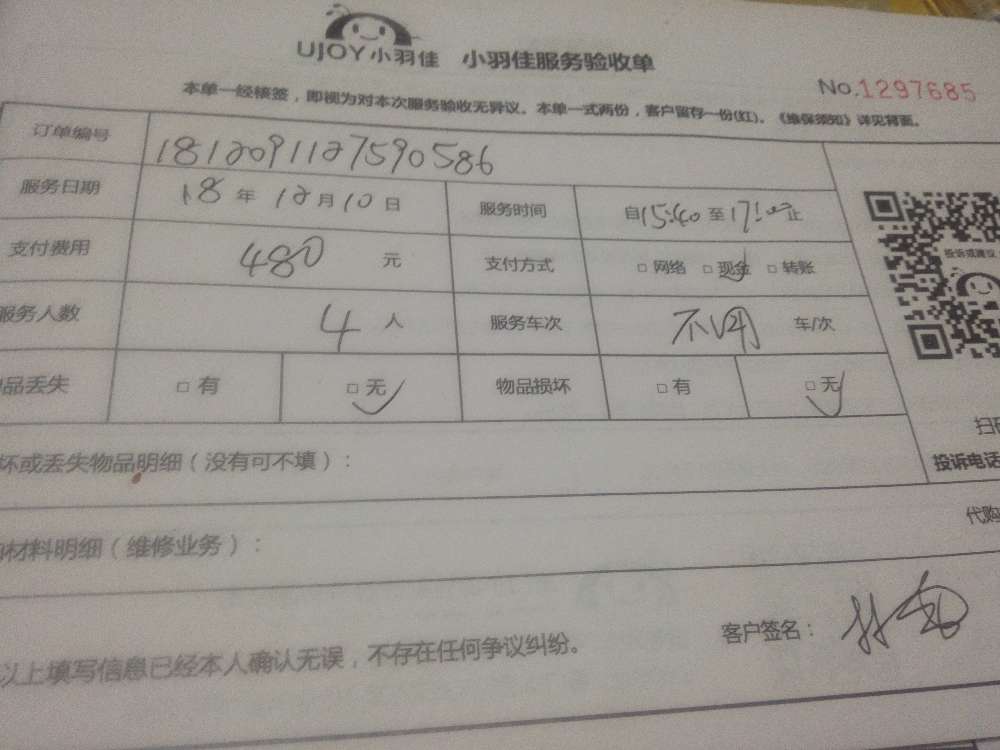 UJOY小羽佳 小羽佳服务验收单
No.1297685
本单一经核签，即视为对本次服务验收无异议。本单一式两份，客户留存一份(红)。《维保须知》详见背面。
订单编号 1812091127590586
服务日期 18年12月10日 服务时间 自15:40至17:00止
支付费用 480元 支付方式 □网络 □现金 □转账
服务人数 4人 服务车次 不明 车/次
品丢失 □有 □无 物品损坏 □有 □无
投诉或建议
扫
坏或丢失物品明细（没有可不填）：
投诉电话
代购
材料明细（维修业务）：
以上填写信息已经本人确认无误，不存在任何争议纠纷。
客户签名：